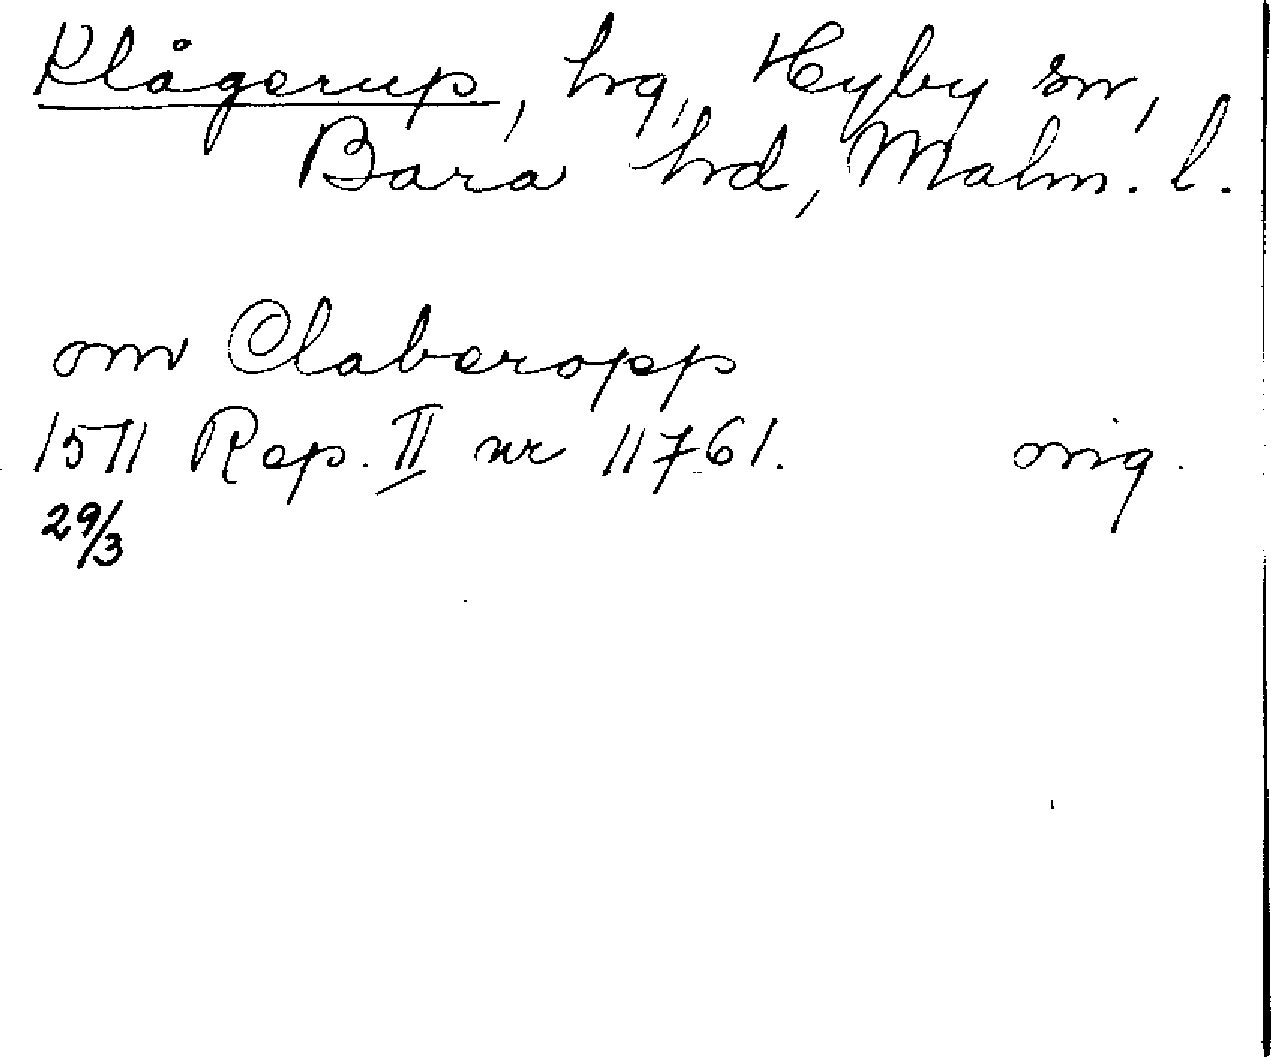 Klågerup, hrg, Hyby sn,
Bara hrd, Malm. l.
om Claberopp
1511 Rep. II nr 11761. orig.
29/3